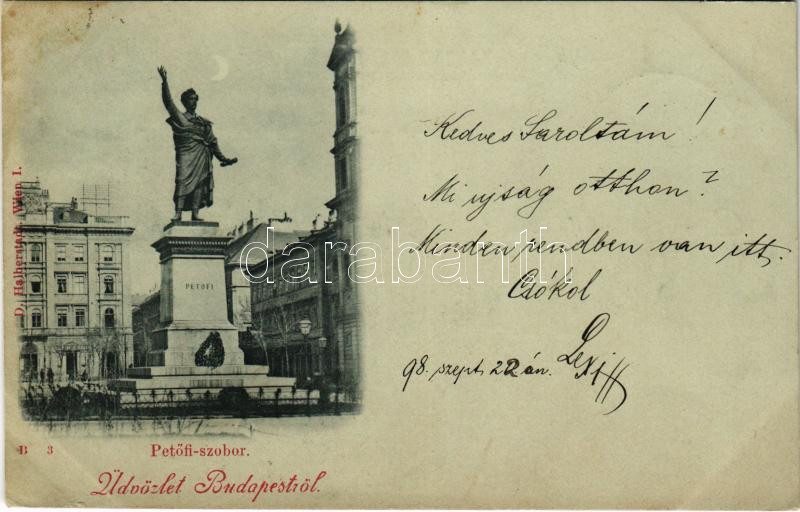 D. Halberstadt, Wien 1.
PETŐFI
B 3
Petőfi-szobor.
Üdvözlet Budapestről.
Kedves Saroltám!
Mi ujság otthon?
Minden rendben van itt.
Csókol
98. szept. 22 án.
darabanth